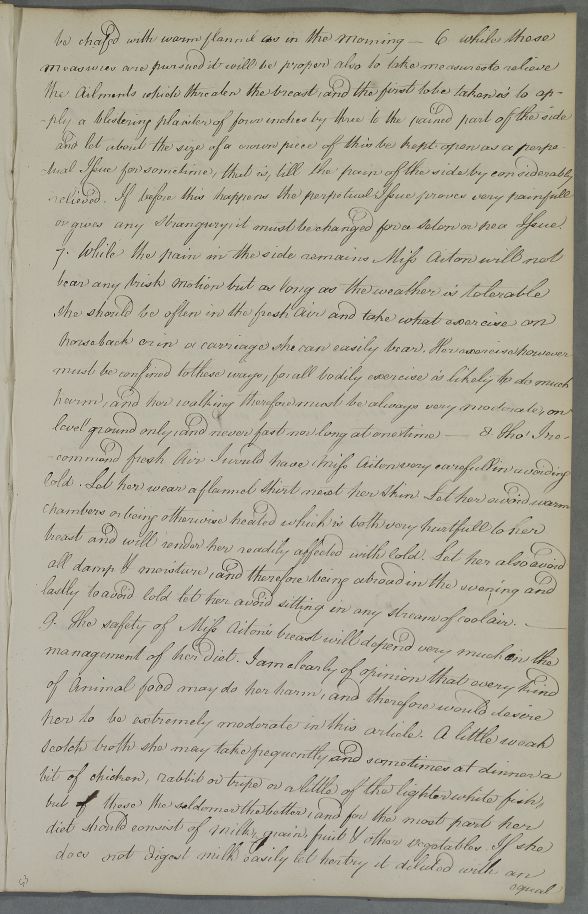 be chafed with warm flannel as in the morning — 6 while these
measures are pursued it will be proper also to take measures to relieve
the ailments which threaten the breast, and the first to be taken is to ap-
-ply a blistering plaister of four inches by three to the pained part of the side
and let about the size of a crown piece of this be kept open as a perpe-
-tual Issue for sometime, that is, till the pain of the side by considerably
relieved. If before this happens the perpetual Issue proves very painfull
or gives any Strangury, it must be changed for a Seton or pea Issue.
7. While the pain in the side remains Miss Aiton will not
bear any brisk motion but as long as the weather is tolerable
she should be often in the fresh Air and take what exercise on
horseback or in a carriage she can easily bear. Her exercise however
must be confined to these ways, for all bodily exercise is likely to do much
harm, and her walking therefore must be always very moderate, on
level ground only, and never fast nor long at one time — 8. Tho' I re-
-commend fresh Air I would have Miss Aiton very carefull in avoiding
Cold. Let her wear a flannel Shirt next her Skin. Let her avoid warm
chambers or being otherwise heated which is both very hurtfull to her
breast and will render her readily affected with cold. Let her also avoid
all damp & moisture, and therefore being abroad in the evening and
lastly to avoid Cold let her avoid sitting in any Stream of cool air. —
9. The safety of Miss Aiton's breast will depend very much on the
management of her diet. I am clearly of opinion that every kind
of Animal food may do her harm, and therefore would desire
her to be extremely moderate in this article. A little weak
Scotch broth she may take frequently and sometimes at dinner a
bit of chicken, rabbit or tripe or a little of the lighter white fish,
but of these the seldomer the better, and for the most part her
diet should consist of milk, grain, fruit & other vegetables. If she
does not digest milk easily let her try it diluted with an
equal